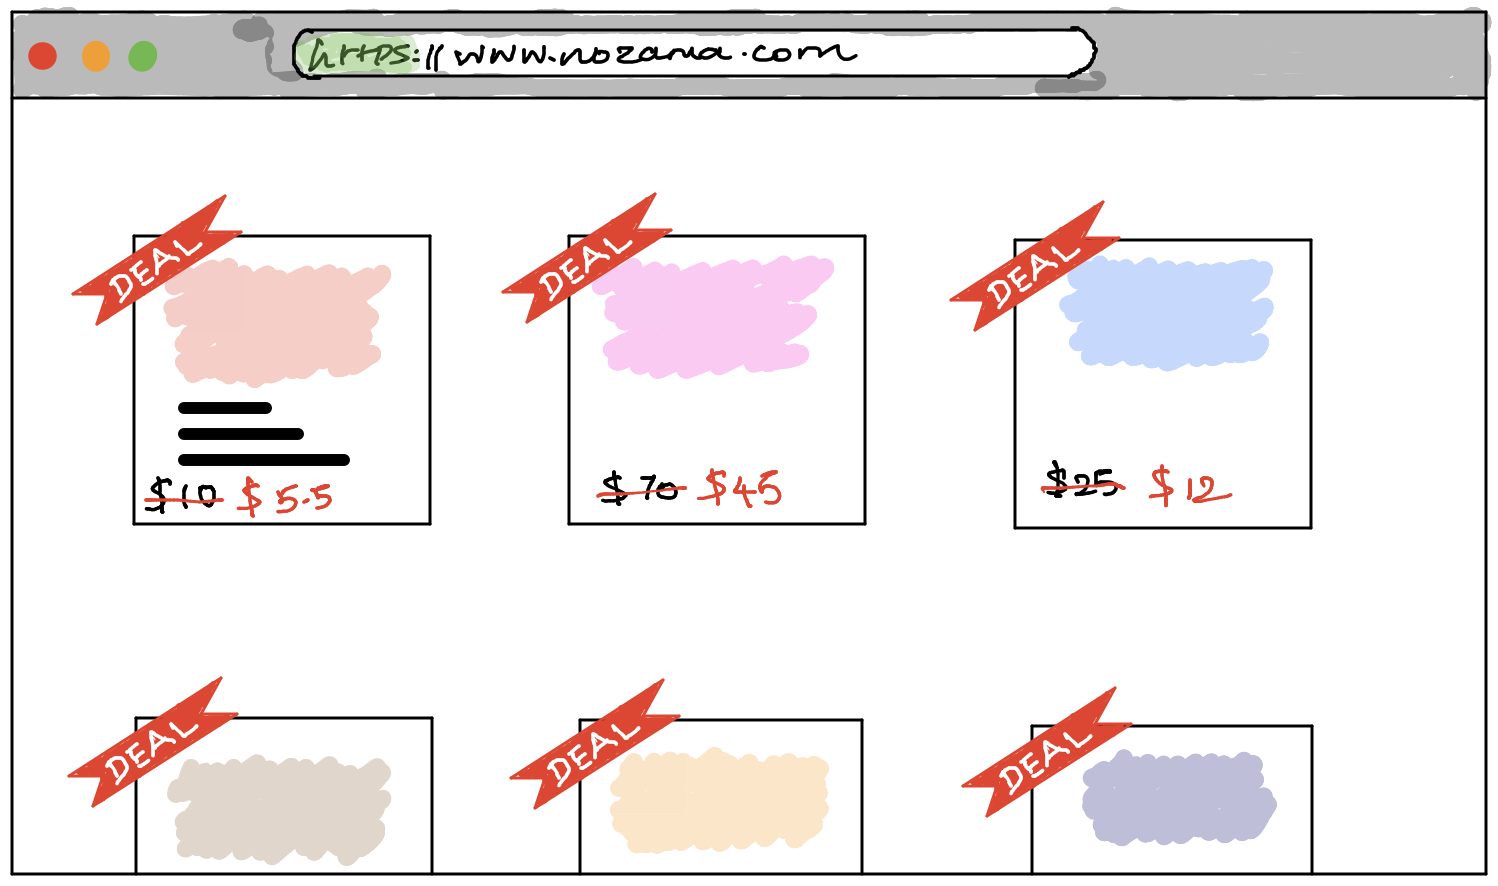 https://www.nozama.com
DEAL
DEAL
DEAL
$10 $5.5
$70 $45
$25 $12
DEAL
DEAL
DEAL